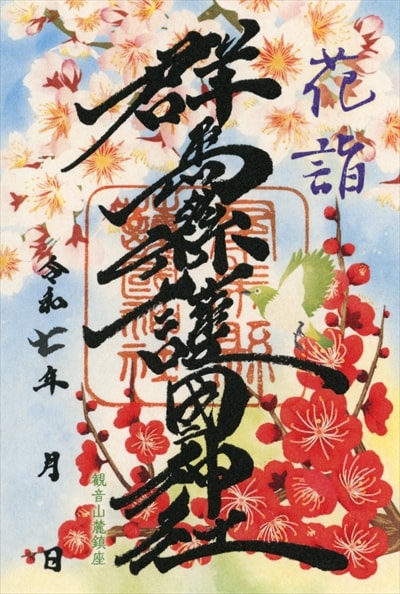 花詣
群馬縣護國神社
令和七年 月 日
観音山麓鎮座